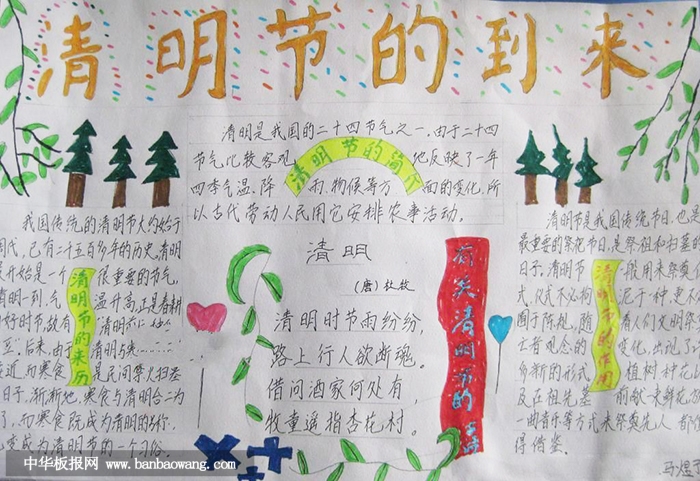 清明节的到来
清明是我国的二十四节气之一。由于二十四
节气比较客观 他反映了一年
四季气温、降雨、物候等方面的变化,所
以古代劳动人民用它安排农事活动。
清明节的简介
我国传统的清明节大约始于
周代,已有二千五百多年的历史。清明
最开始是一个很重要的节气,
清明一到,气温升高,正是春耕
的好时节,故有“清明前后
豆”。后来,由于清明与寒
近,而寒食是民间禁火扫墓
日子,渐渐地,寒食与清明合二为
了,而寒食既成为清明的别
变成为清明节的一个习俗。
清明节的来历
清明
(唐)杜牧
清明时节雨纷纷,
路上行人欲断魂。
借问酒家何处有,
牧童遥指杏花村。
有关清明节的古诗
清明节是我国传统节日,也是
最重要的祭祀节日,是祭祖和扫墓的
日子。清明节一般用来祭
式、仪式不必拘泥于种
囿于陈规,随着人们文明
亡者观念的变化,出现了
多新的形式 植树
及在祖先墓前献一束鲜花
一曲音乐等方式来祭奠先人,都
得借鉴。
清明节的作用
中华板报网 www.banbaowang.com
马煜